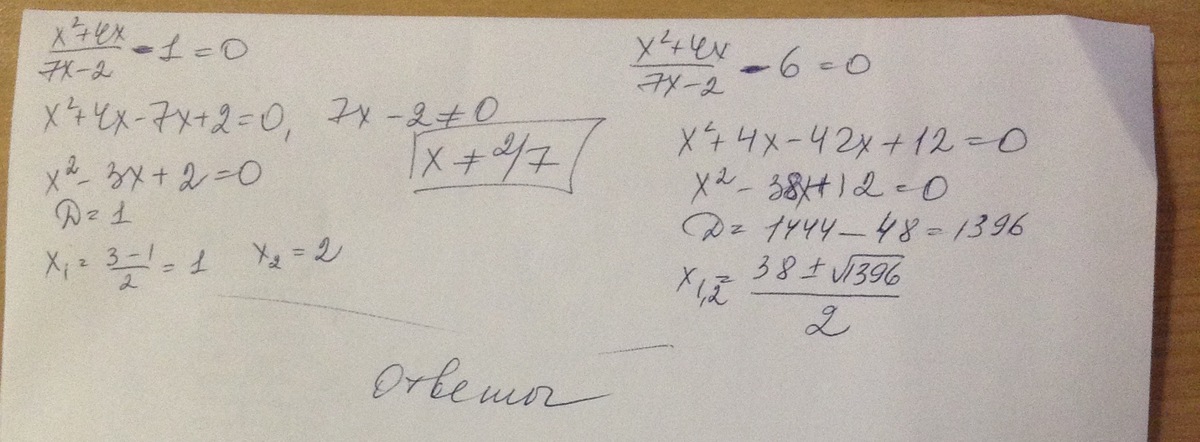 (x²+4x)/(7x-2) - 1 = 0
x²+4x-7x+2=0, 7x-2≠0
x≠2/7
x²-3x+2=0
D=1
x₁=(3-1)/2=1 x₂=2
(x²+4x)/(7x-2) - 6 = 0
x²+4x-42x+12=0
x²-38x+12=0
D=1444-48=1396
x₁,₂=(38±√1396)/2
Ответы